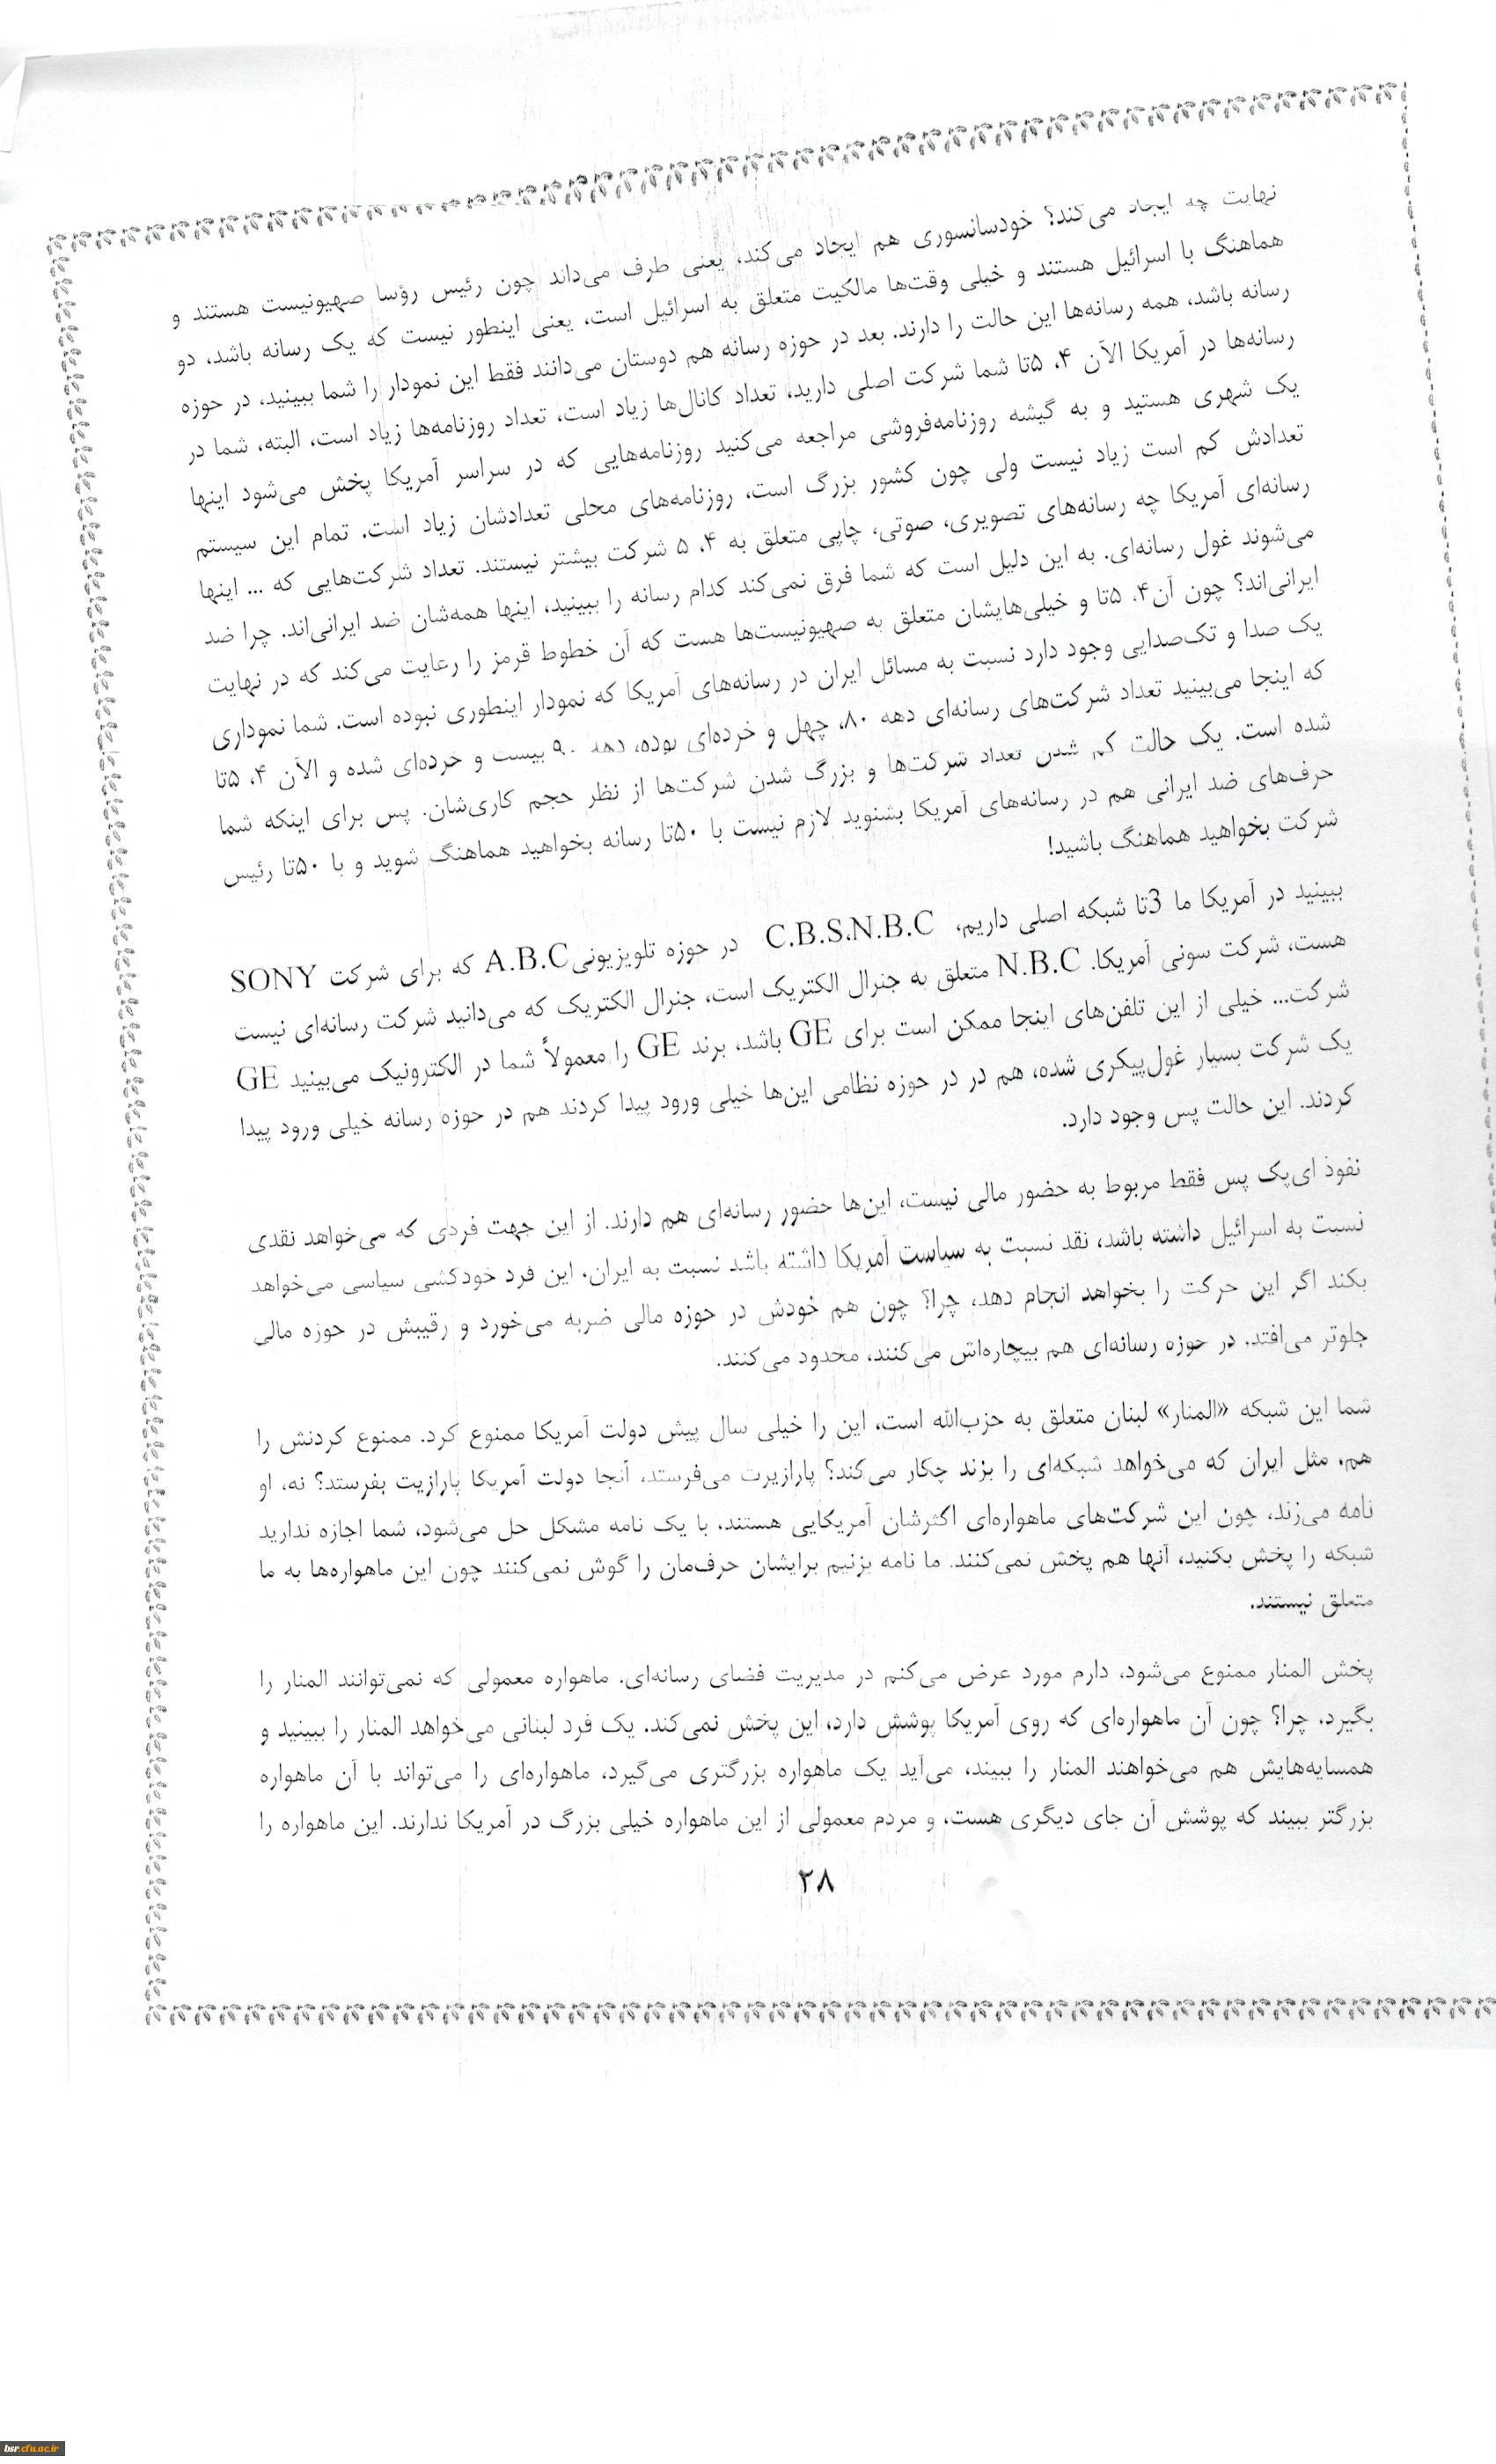 نهایت چه ایجاد می‌کند؟ خودسانسوری هم ایجاد می‌کند، یعنی طرف می‌داند چون رئیس رؤسا صهیونیست هستند و
هماهنگ با اسرائیل هستند و خیلی وقت‌ها مالکیت متعلق به اسرائیل است، یعنی اینطور نیست که یک رسانه باشد، دو
رسانه باشد، همه رسانه‌ها این حالت را دارند. بعد در حوزه رسانه هم دوستان می‌دانند فقط این نمودار را شما ببینید، در حوزه
رسانه‌ها در آمریکا الآن ۴، ۵تا شما شرکت اصلی دارید، تعداد کانال‌ها زیاد است، تعداد روزنامه‌ها زیاد است، البته، شما در
یک شهری هستید و به گیشه روزنامه‌فروشی مراجعه می‌کنید روزنامه‌هایی که در سراسر آمریکا پخش می‌شود اینها
تعدادش کم است زیاد نیست ولی چون کشور بزرگ است، روزنامه‌های محلی تعدادشان زیاد است. تمام این سیستم
رسانه‌ای آمریکا چه رسانه‌های تصویری، صوتی، چاپی متعلق به ۴، ۵ شرکت بیشتر نیستند. تعداد شرکت‌هایی که ... اینها
می‌شوند غول رسانه‌ای. به این دلیل است که شما فرق نمی‌کند کدام رسانه را ببینید، اینها همه‌شان ضد ایرانی‌اند. چرا ضد
ایرانی‌اند؟ چون آن۴، ۵تا و خیلی‌هایشان متعلق به صهیونیست‌ها هست که آن خطوط قرمز را رعایت می‌کند که در نهایت
یک صدا و تک‌صدایی وجود دارد نسبت به مسائل ایران در رسانه‌های آمریکا که نمودار اینطوری نبوده است. شما نموداری
که اینجا می‌بینید تعداد شرکت‌های رسانه‌ای دهه ۸۰، چهل و خرده‌ای بوده، دهه ۹۰ بیست و خرده‌ای شده و الآن ۴، ۵تا
شده است. یک حالت کم شدن تعداد شرکت‌ها و بزرگ شدن شرکت‌ها از نظر حجم کاری‌شان. پس برای اینکه شما
حرف‌های ضد ایرانی هم در رسانه‌های آمریکا بشنوید لازم نیست با ۵۰تا رسانه بخواهید هماهنگ شوید و با ۵۰تا رئیس
شرکت بخواهید هماهنگ باشید!
ببینید در آمریکا ما 3تا شبکه اصلی داریم، C.B.S،N.B.C در حوزه تلویزیونیA.B.C که برای شرکت SONY
هست، شرکت سونی آمریکا. N.B.C متعلق به جنرال الکتریک است، جنرال الکتریک که می‌دانید شرکت رسانه‌ای نیست
شرکت... خیلی از این تلفن‌های اینجا ممکن است برای GE باشد، برند GE را معمولاً شما در الکترونیک می‌بینید GE
یک شرکت بسیار غول‌پیکری شده، هم در در حوزه نظامی این‌ها خیلی ورود پیدا کردند هم در حوزه رسانه خیلی ورود پیدا
کردند. این حالت پس وجود دارد.
نفوذ ای‌پک پس فقط مربوط به حضور مالی نیست، این‌ها حضور رسانه‌ای هم دارند. از این جهت فردی که می‌خواهد نقدی
نسبت به اسرائیل داشته باشد، نقد نسبت به سیاست آمریکا داشته باشد نسبت به ایران، این فرد خودکشی سیاسی می‌خواهد
بکند اگر این حرکت را بخواهد انجام دهد، چرا؟ چون هم خودش در حوزه مالی ضربه می‌خورد و رقیبش در حوزه مالی
جلوتر می‌افتد. در حوزه رسانه‌ای هم بیچاره‌اش می‌کنند، محدود می‌کنند.
شما این شبکه «المنار» لبنان متعلق به حزب‌الله است، این را خیلی سال پیش دولت آمریکا ممنوع کرد. ممنوع کردنش را
هم، مثل ایران که می‌خواهد شبکه‌ای را بزند چکار می‌کند؟ پارازیرت می‌فرستد، آنجا دولت آمریکا پارازیت بفرستد؟ نه، او
نامه می‌زند، چون این شرکت‌های ماهواره‌ای اکثرشان آمریکایی هستند، با یک نامه مشکل حل می‌شود، شما اجازه ندارید
شبکه را پخش بکنید، آنها هم پخش نمی‌کنند. ما نامه بزنیم برایشان حرف‌مان را گوش نمی‌کنند چون این ماهواره‌ها به ما
متعلق نیستند.
پخش المنار ممنوع می‌شود، دارم مورد عرض می‌کنم در مدیریت فضای رسانه‌ای. ماهواره معمولی که نمی‌توانند المنار را
بگیرد. چرا؟ چون آن ماهواره‌ای که روی آمریکا پوشش دارد، این پخش نمی‌کند. یک فرد لبنانی می‌خواهد المنار را ببینید و
همسایه‌هایش هم می‌خواهند المنار را ببیند، می‌آید یک ماهواره بزرگتری می‌گیرد، ماهواره‌ای را می‌تواند با آن ماهواره
بزرگتر ببیند که پوشش آن جای دیگری هست، و مردم معمولی از این ماهواره خیلی بزرگ در آمریکا ندارند. این ماهواره را
۲۸
bsr.cfu.ac.ir